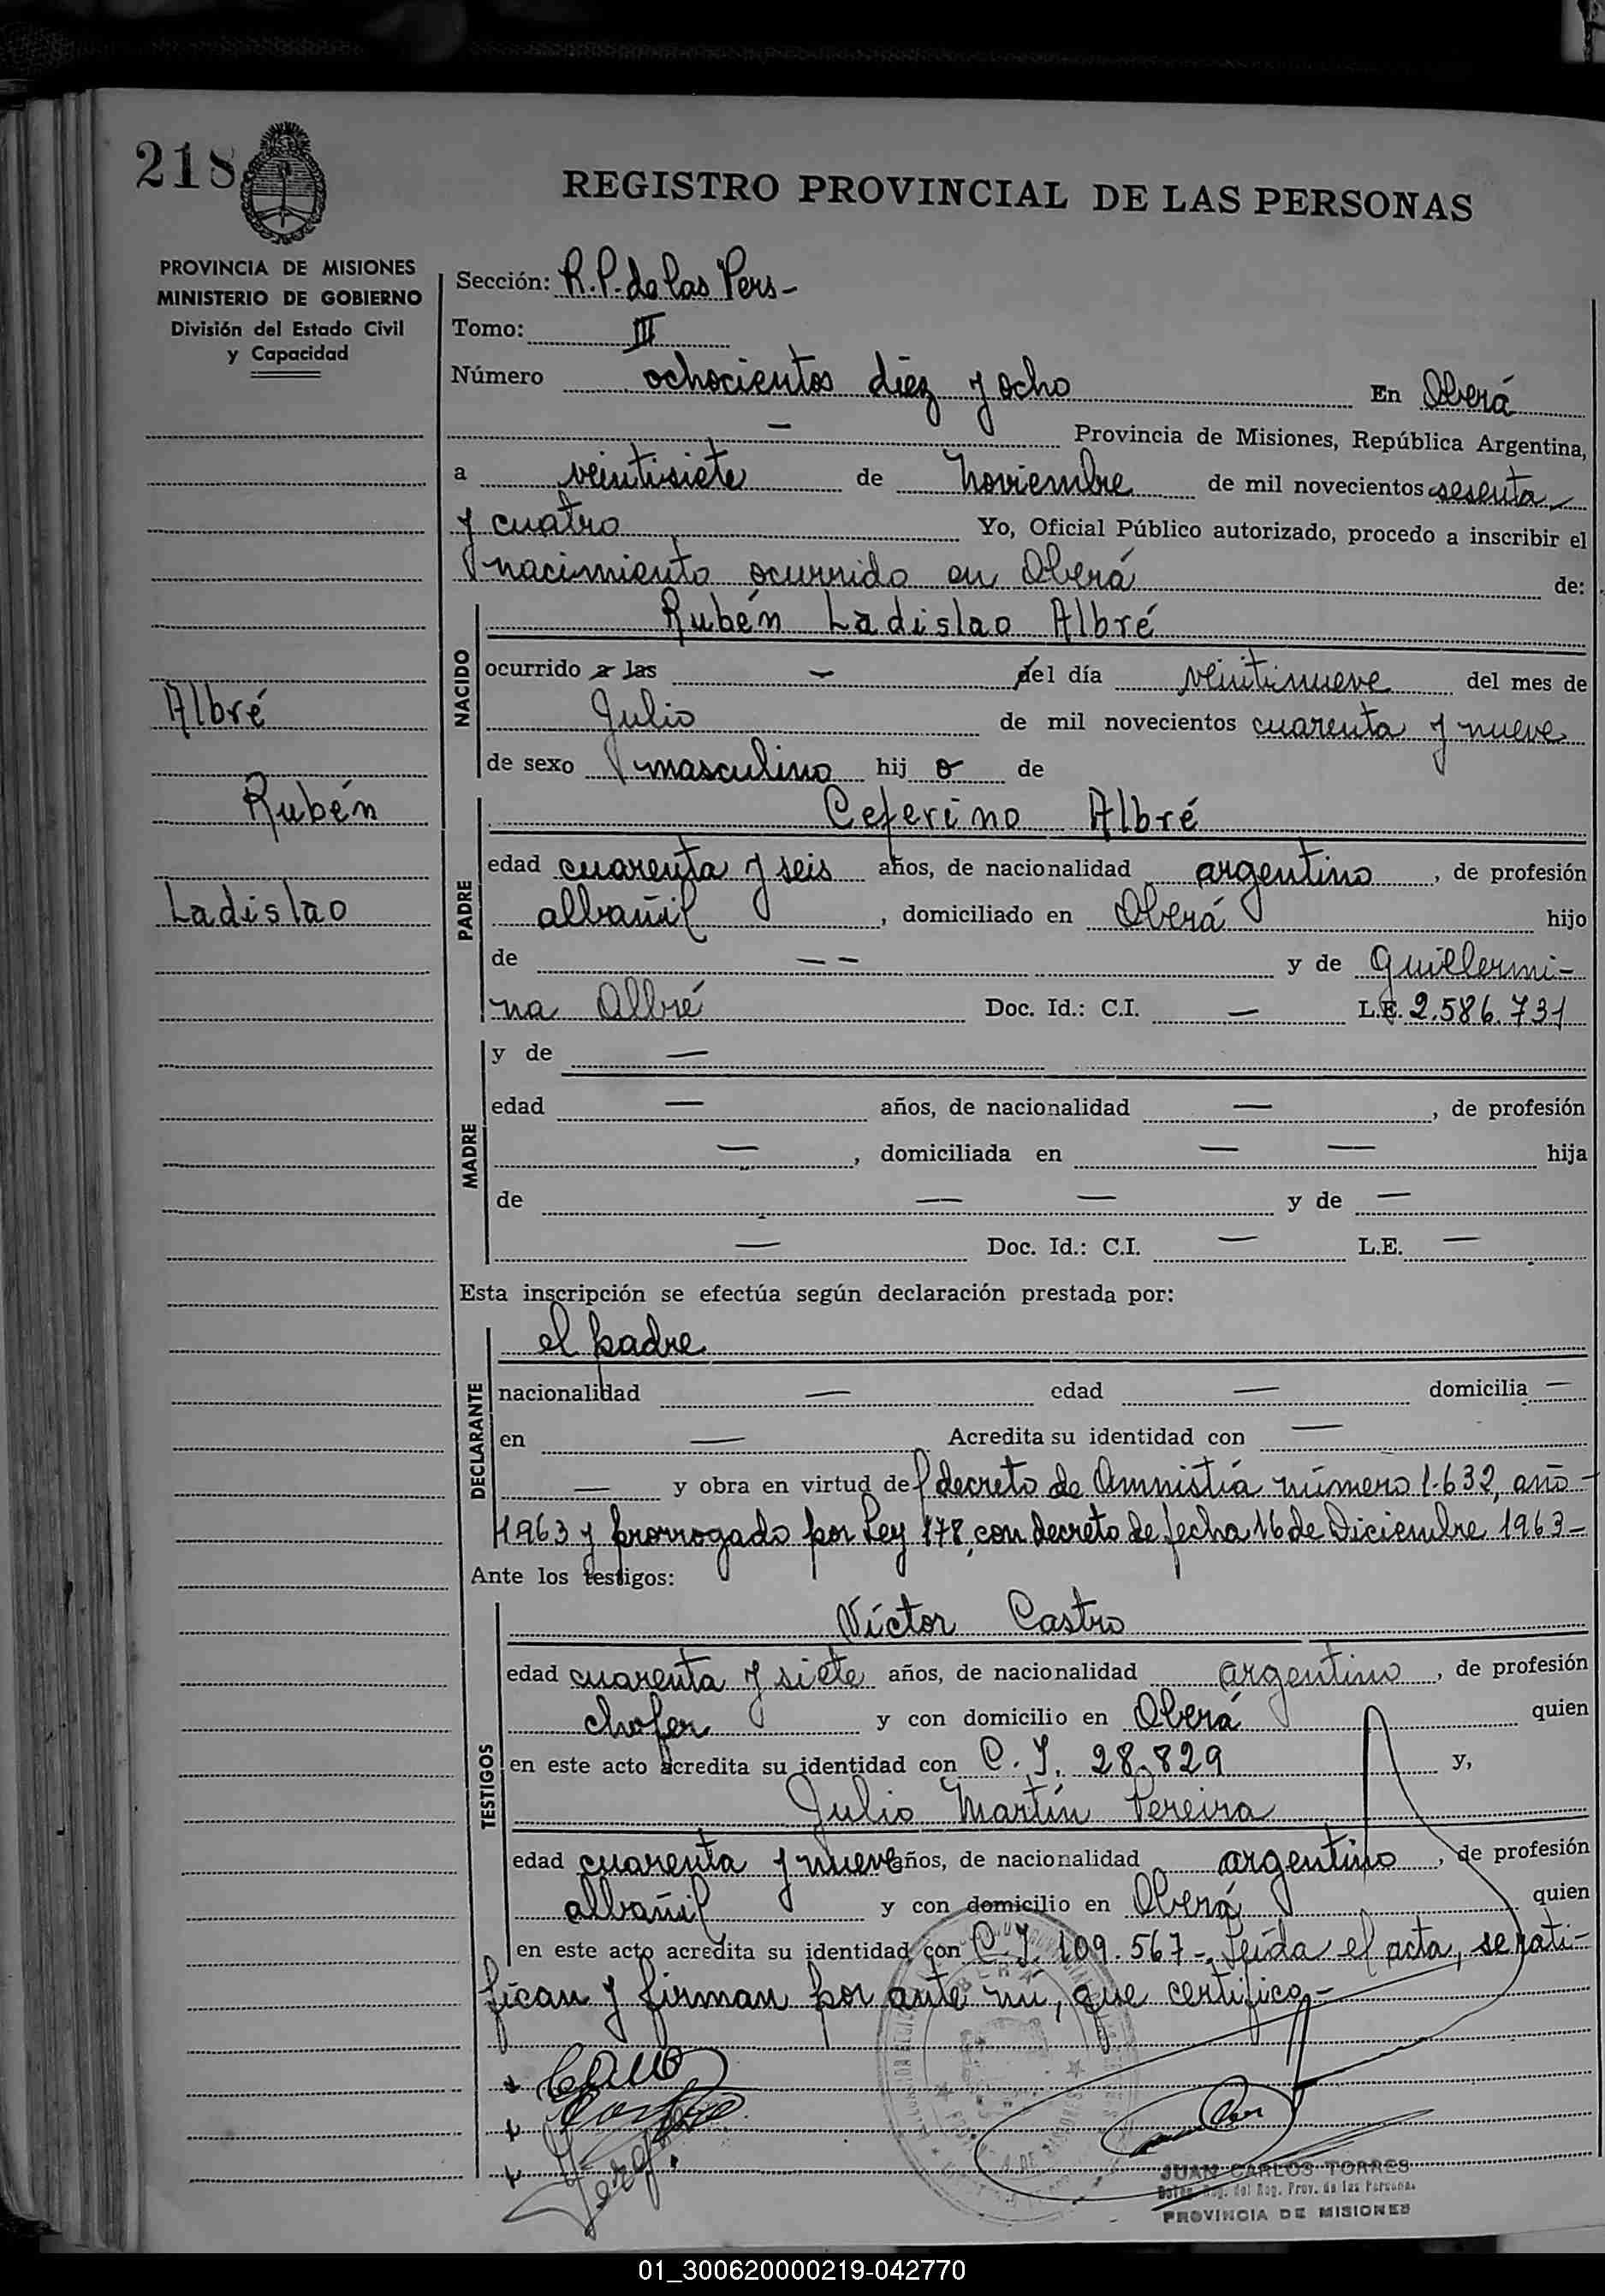 218
REGISTRO PROVINCIAL DE LAS PERSONAS
PROVINCIA DE MISIONES
MINISTERIO DE GOBIERNO
División del Estado Civil
y Capacidad
Sección: R.P. de las Pers-
Tomo: III
Número ochocientos diez y ocho En Oberá
- Provincia de Misiones, República Argentina,
a veintisiete de Noviembre de mil novecientos sesenta
y cuatro Yo, Oficial Público autorizado, procedo a inscribir el
nacimiento ocurrido en Oberá de:
NACIDO
Rubén Ladislao Albré
ocurrido a las - del día veintinueve del mes de
Julio de mil novecientos cuarenta y nueve
de sexo masculino hijo de
Albré
Rubén
Ladislao
PADRE
Ceferino Albré
edad cuarenta y seis años, de nacionalidad argentino, de profesión
albañil, domiciliado en Oberá hijo
de - - y de Guillermi-
na Albré Doc. Id.: C.I. - L.E. 2.586.731
MADRE
y de -
edad - años, de nacionalidad -, de profesión
-, domiciliada en - - hija
de - - y de -
- Doc. Id.: C.I. - L.E. -
Esta inscripción se efectúa según declaración prestada por:
DECLARANTE
el padre
nacionalidad - edad - domicilia -
en - Acredita su identidad con -
- y obra en virtud del decreto de Amnistía número 1.632, año -
1963 y prorrogado por Ley 178, con decreto de fecha 16 de Diciembre 1963-
Ante los testigos:
TESTIGOS
Víctor Castro
edad cuarenta y siete años, de nacionalidad argentino, de profesión
chofer y con domicilio en Oberá quien
en este acto acredita su identidad con C.I. 28.829 y,
Julio Martín Pereira
edad cuarenta y nueve años, de nacionalidad argentino, de profesión
albañil y con domicilio en Oberá quien
en este acto acredita su identidad con C.I. 109.567-. Leída el acta, se rati-
fican y firman por ante mí, que certifico.-
JUAN CARLOS TORRES
Reg. del Reg. Prov. de las Personas
PROVINCIA DE MISIONES
01_300620000219-042770